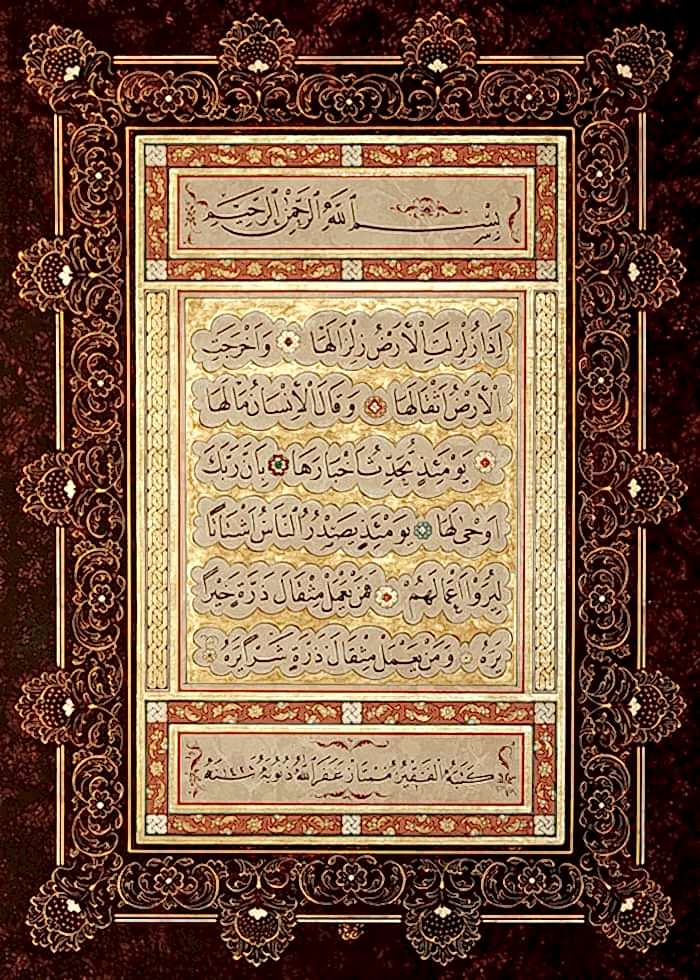 بِسْمِ اللَّهِ الرَّحْمٰنِ الرَّحِيمِ
إِذَا زُلْزِلَتِ الْأَرْضُ زِلْزَالَهَا وَأَخْرَجَتِ
الْأَرْضُ أَثْقَالَهَا وَقَالَ الْإِنْسَانُ مَا لَهَا
يَوْمَئِذٍ تُحَدِّثُ أَخْبَارَهَا بِأَنَّ رَبَّكَ
أَوْحَى لَهَا يَوْمَئِذٍ يَصْدُرُ النَّاسُ أَشْتَاتًا
لِيُرَوْا أَعْمَالَهُمْ فَمَنْ يَعْمَلْ مِثْقَالَ ذَرَّةٍ خَيْرًا
يَرَهُ وَمَنْ يَعْمَلْ مِثْقَالَ ذَرَّةٍ شَرًّا يَرَهُ
كَتَبَهُ الْفَقِيرُ مُمْتَازْ غَفَرَ اللَّهُ ذُنُوبَهُ سَنَة